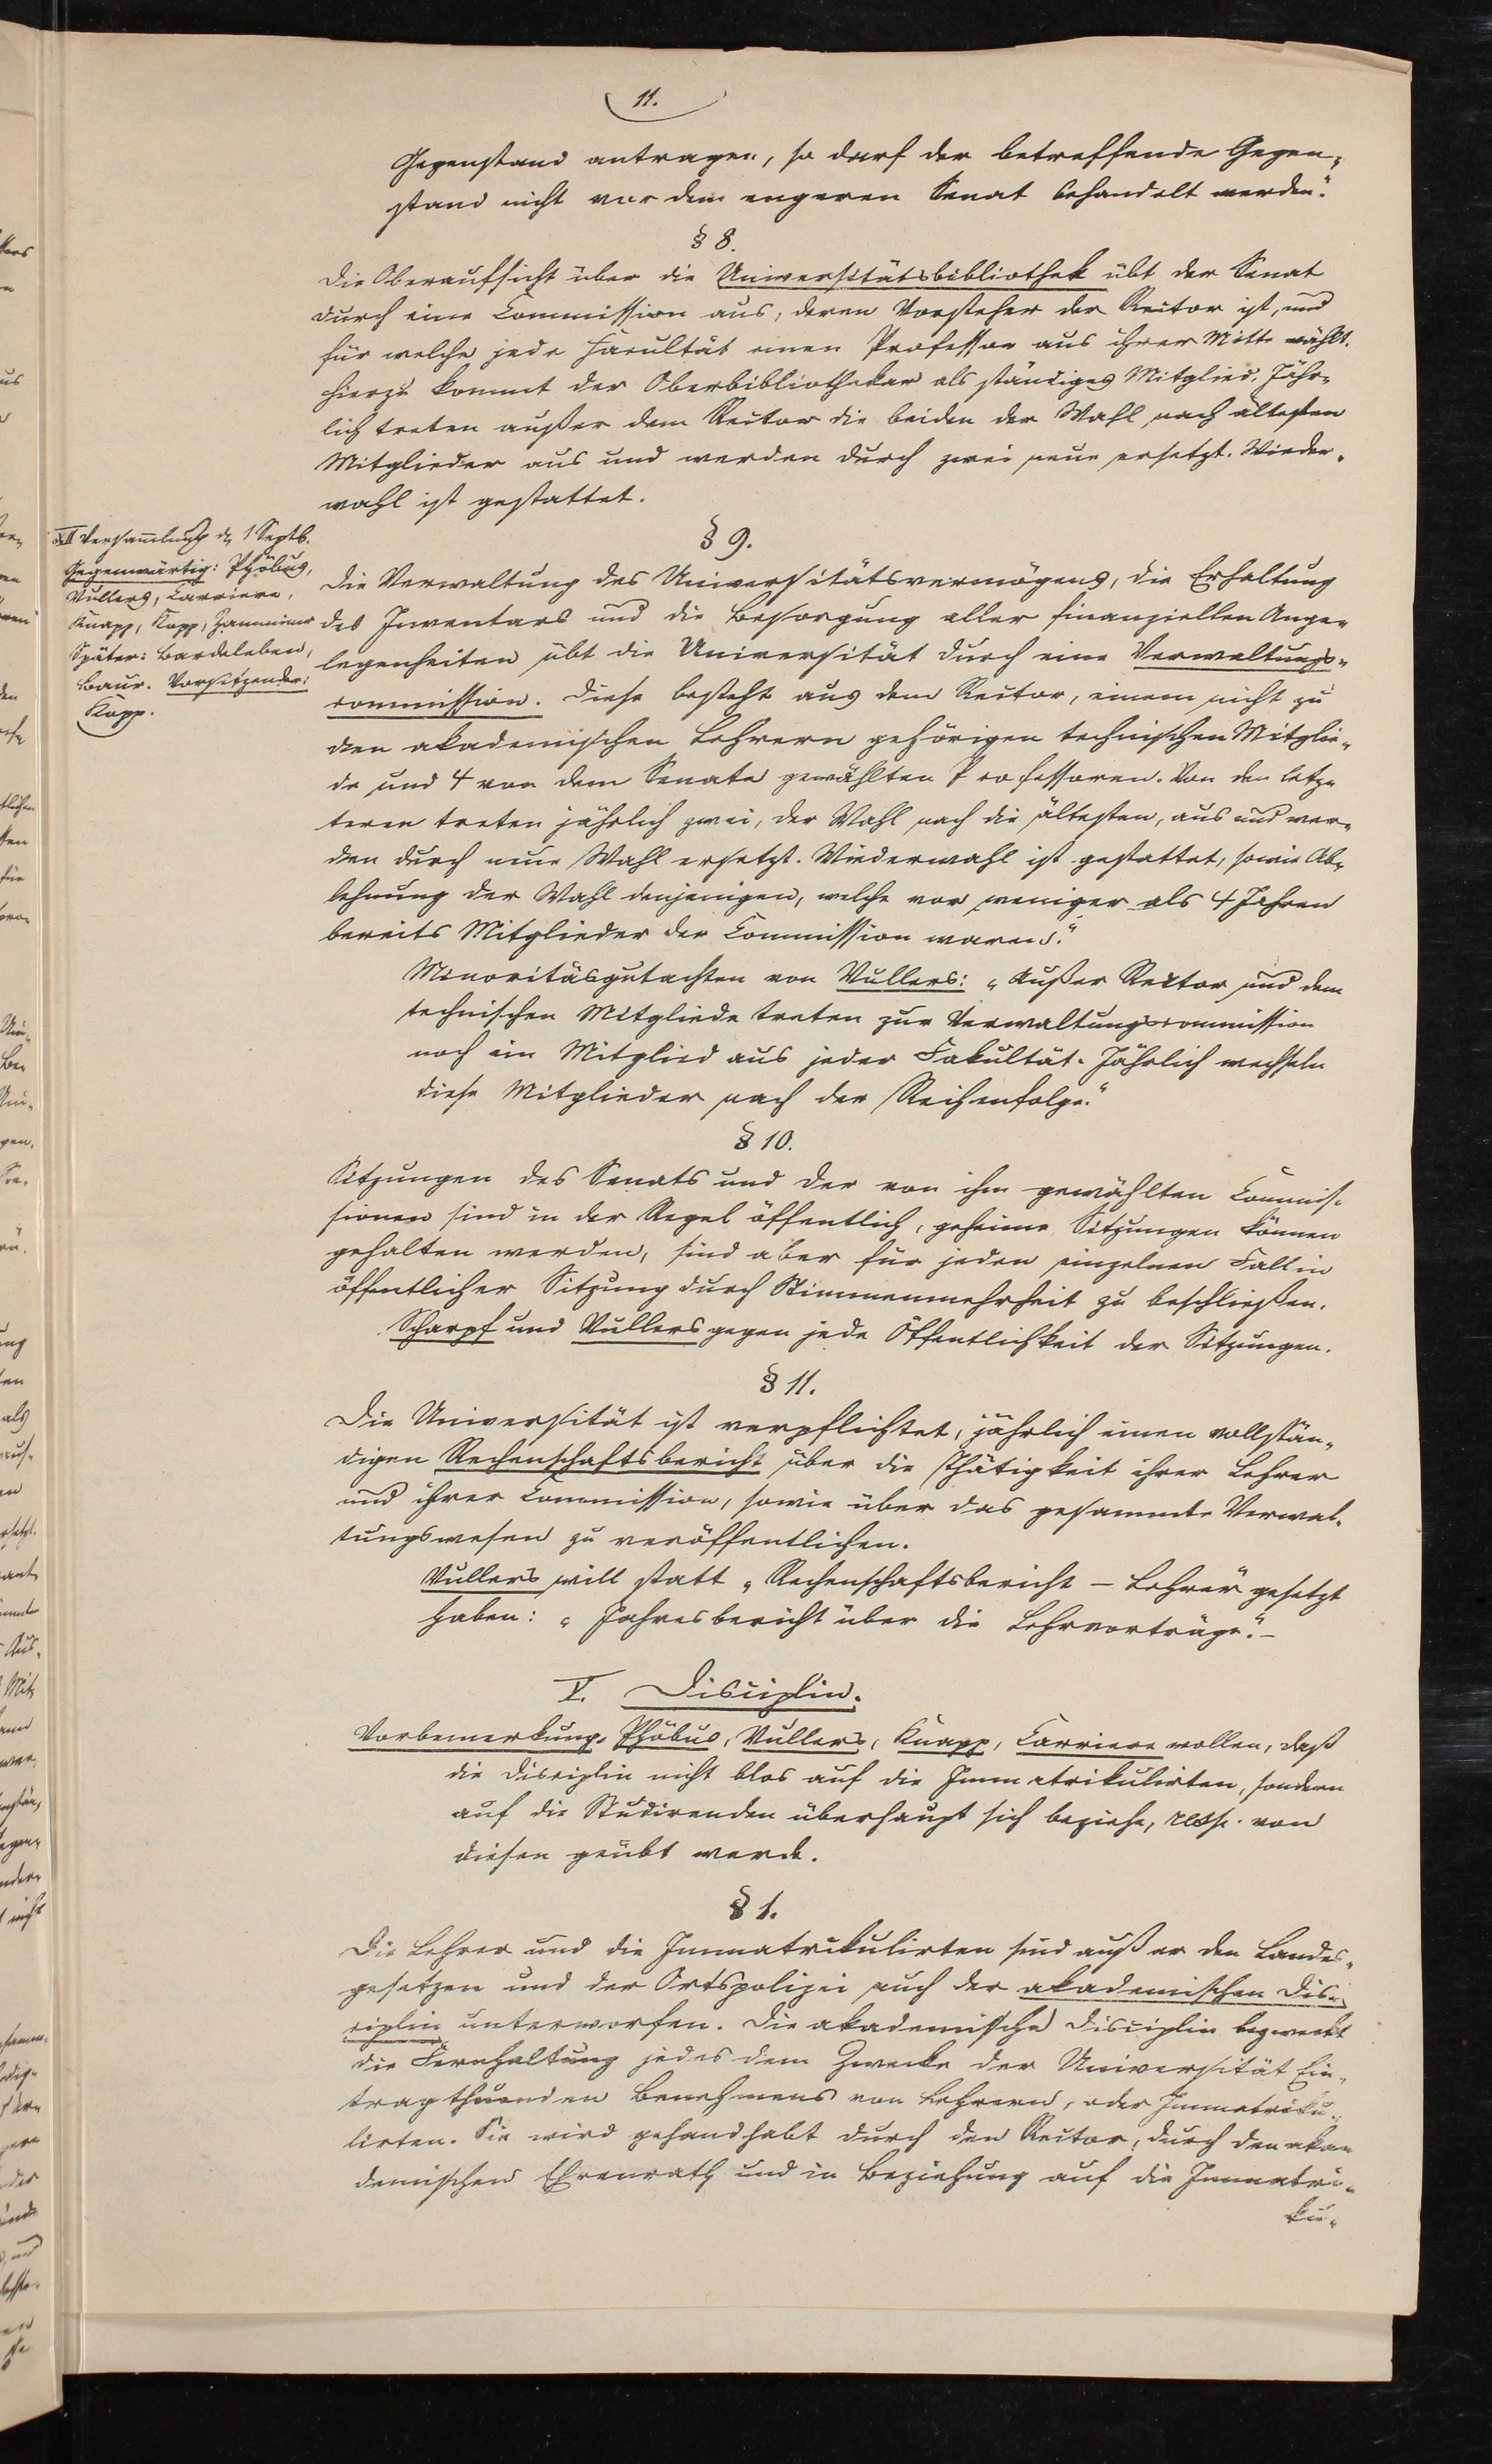 11.
Gegenstand antragen, so darf der betreffende Gegen-
stand nicht vor dem engeren Senat behandelt werden."
§ 8.
Die Oberaufsicht über die Universitätsbibliothek übt der Senat
durch eine Commission aus, deren Vorsteher der Rector ist, und
für welche jede Facultät einen Professor aus ihrer Mitte wählt.
Hierzu kommt der Oberbibliothekar als ständiges Mitglied. Jähr-
lich treten außer dem Rector die beiden der Wahl nach ältesten
Mitglieder aus und werden durch zwei neue ersetzt. Wieder-
wahl ist gestattet.
XII Versammlung d. 1 Septb.
Gegenwärtig: Phöbus,
Vullers, Carriere,
Knapp, Kopp, Zamminer
Später: Bardeleben,
Baur. Vorsitzender:
Kopp.
§ 9.
Die Verwaltung des Universitätsvermögens, die Erhaltung
des Inventars und die Besorgung aller finanziellen Ange-
legenheiten übt die Universität durch eine Verwaltungs-
commission. Diese besteht aus dem Rector, einem nicht zu
den akademischen Lehrern gehörigen technischen Mitglie-
de und 4 von dem Senate gewählten Professoren. Von den letz-
teren treten jährlich zwei, der Wahl nach die ältesten, aus und wer-
den durch neue Wahl ersetzt. Wiederwahl ist gestattet, sowie Ab-
lehnung der Wahl denjenigen, welche vor weniger als 4 Jahren
bereits Mitglieder der Commission waren."
Minoritäsgutachten von Vullers: „Außer Rector und dem
technischen Mitgliede treten zur Verwaltungscommission
noch ein Mitglied aus jeder Fakultät. Jährlich wechseln
diese Mitglieder nach der Reihenfolge."
§ 10.
Sitzungen des Senats und der von ihm gewählten Commis-
sionen sind in der Regel öffentlich, geheime Sitzungen können
gehalten werden, sind aber für jeden einzelnen Fall in
öffentlicher Sitzung durch Stimmenmehrheit zu beschließen.
Scharpf und Vullers gegen jede Öffentlichkeit der Sitzungen.
§ 11.
Die Universität ist verpflichtet, jährlich einen vollstän-
digen Rechenschaftsbericht über die Thätigkeit ihrer Lehrer
und ihrer Commission, sowie über das gesammte Verwal-
tungswesen zu veröffentlichen.
Vullers will statt „Rechenschaftsbericht – Lehrer" gesetzt
haben: „Jahresbericht über die Lehrvorträge." –
V. Disciplin.
Vorbemerkung. Phöbus, Vullers, Knapp, Carriere wollen, daß
die Disciplin nicht blos auf die Immatrikulirten, sondern
auf die Studirenden überhaupt sich beziehe, resp. von
diesen geübt werde.
§ 1.
Die Lehrer und die Immatrikulirten sind außer den Landes-
gesetzen und der Ortspolizei auch der akademischen Dis-
ciplin unterworfen. Die akademische Disciplin bezweckt
die Fernhaltung jedes dem Zwecke der Universität Ein-
tragthuenden Benehmens von Lehrern, oder Immatriku-
lirten. Sie wird gehandhabt durch den Rector, durch den aka-
demischen Ehrenrath und in Beziehung auf die Immatri-
ku-